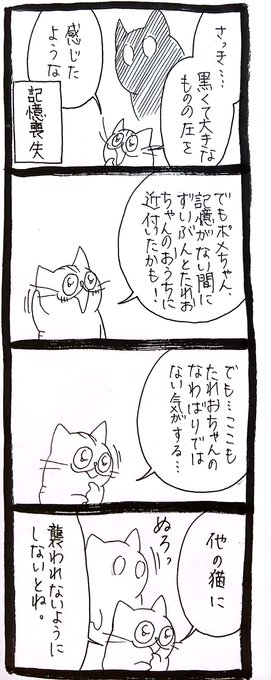 さっき…
黒くて大きな
ものの圧を
感じた
ような
記憶喪失
でもポメちゃん、
記憶がない間に
ずいぶんとたれお
ちゃんのおうちに
近付いたかも!
でも…ここも
たれおちゃんの
なわばりでは
ない気がする…
他の猫に
ぬろっ
襲われないように
しないとね。